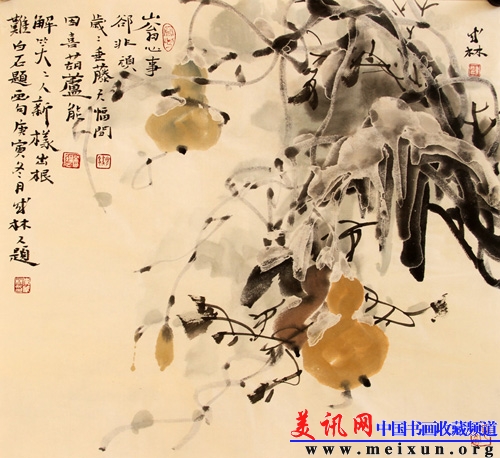 成林
山翁心事
卻非頑
歲〻垂藤尺幅間
因喜葫蘆能
解笑人人新樣出根
難白石題画句庚寅冬月成林又題
美讯网 中国书画收藏频道
www.meixun.org